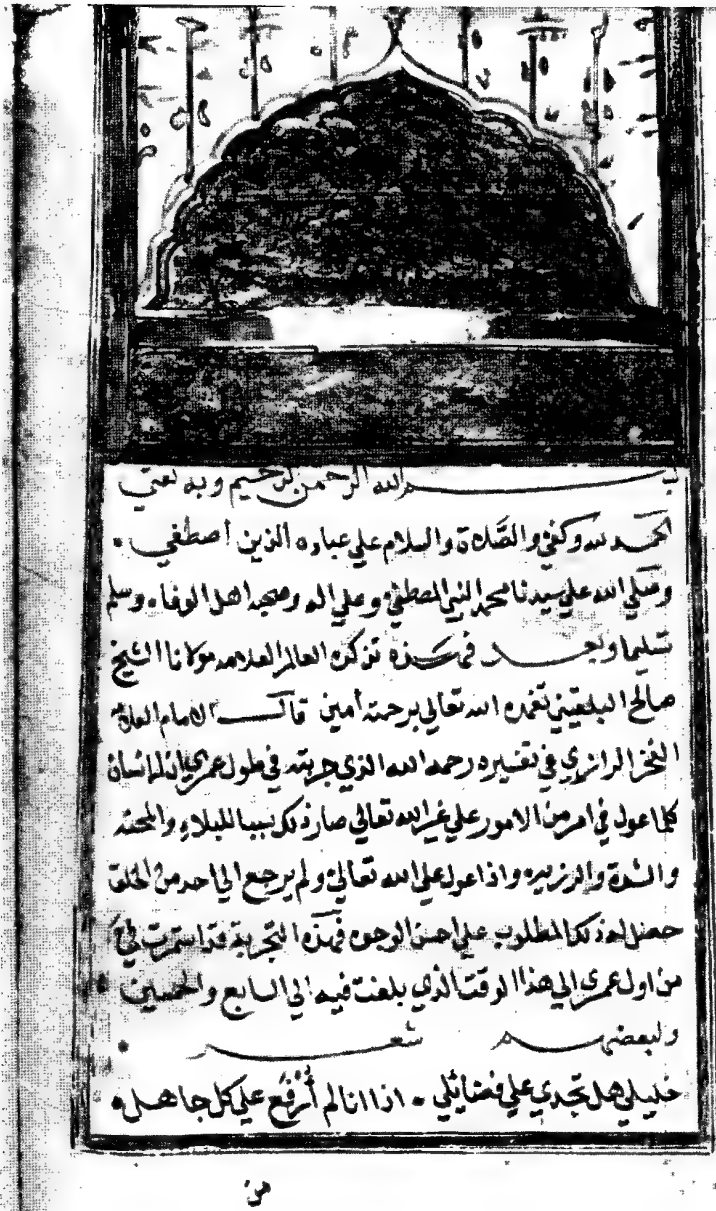 بسم الله الرحمن الرحيم وبه ثقتي
الحمد لله وكفي والصَّلاة والسلام علي عباده الذين اصطفي .
وصلي الله علي سيدنا محمد النبي المصطفي وعلي اله وصحبه اهل الوفاء وسلم
تسليما وبعد فهذه تذكرة العالم العلامه مولانا الشيخ
صالح البلقيني تغمده الله تعالي برحمته أمين قال الامام العلامة
الفخر الرازي في تفسيره رحمه الله الذي جربته في طول عمري ان الإنسان
كلما عول في امر من الامور علي غير الله تعالي صار ذلك سببا للبلاء والمحنه
والشدة والرزيه واذا عول علي الله تعالي ولم يرجع الي احد من الخلق
حصل له ذلك المطلوب علي احسن الوجوه فهذه التجربة قد استمرت لي
من اول عمري الي هذا الوقت الذي بلغت فيه الي السابع والخمسين
ولبعضهم شعر
خليلي هل تجدي علي فضائلي . اذا انا لم أُرْفَع علي كل جاهل .
من